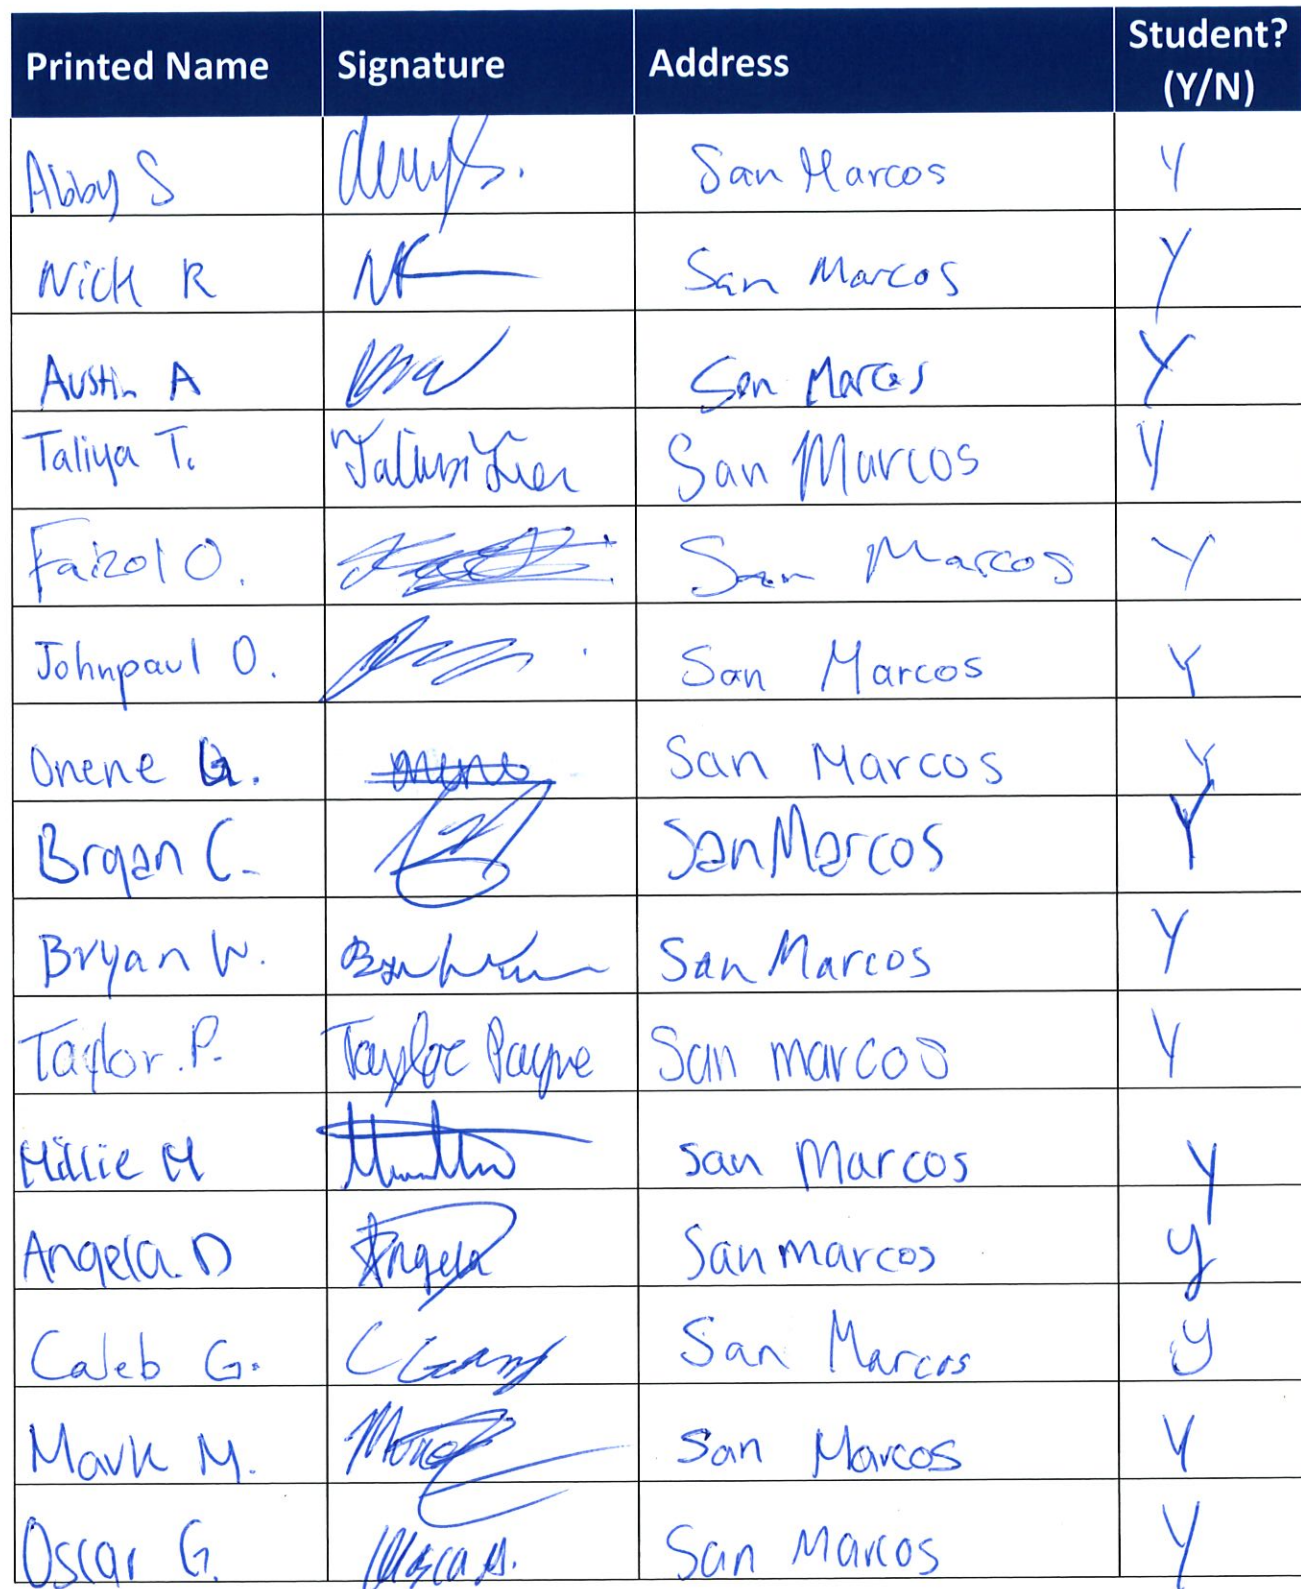 Printed Name Signature Address Student? (Y/N)
Abby S San Marcos Y
Nick R San Marcos Y
Austin A San Marcos Y
Taliya T. San Marcos Y
Faizol O. San Marcos Y
Johnpaul O. San Marcos Y
Onene G. San Marcos Y
Bryan C. San Marcos Y
Bryan W. San Marcos Y
Taylor.P. Taylor Payne San marcos Y
Millie M San Marcos Y
Angela. D Angela San marcos y
Caleb G. San Marcos y
Mark M. San Marcos Y
Oscar G. San Marcos Y